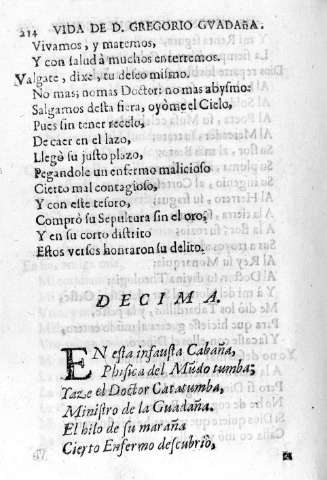 214 VIDA DE D. GREGORIO GVADAÑA.
Vivamos, y matemos,
Y con salud à muchos enterremos.
Valgate, dixe, tu deseo mismo.
No mas; no mas Doctor: no mas abysmo.
Salgamos desta fiera, oyòme el Cielo,
Pues sin tener recelo,
De caer en el lazo,
Llegò su justo plazo,
Pegandole un enfermo malicioso
Cierto mal contagioso,
Y con este tesoro,
Comprò su Sepultura sin el oro,
Y en su corto distrito
Estos versos honraron su delito.
DECIMA.
EN esta infausta Cabaña,
Phisica del Mũdo tumba;
Yaze el Doctor Catatumba,
Ministro de la Guadaña.
El hilo de su maraña
Cierto Enfermo descubriò,